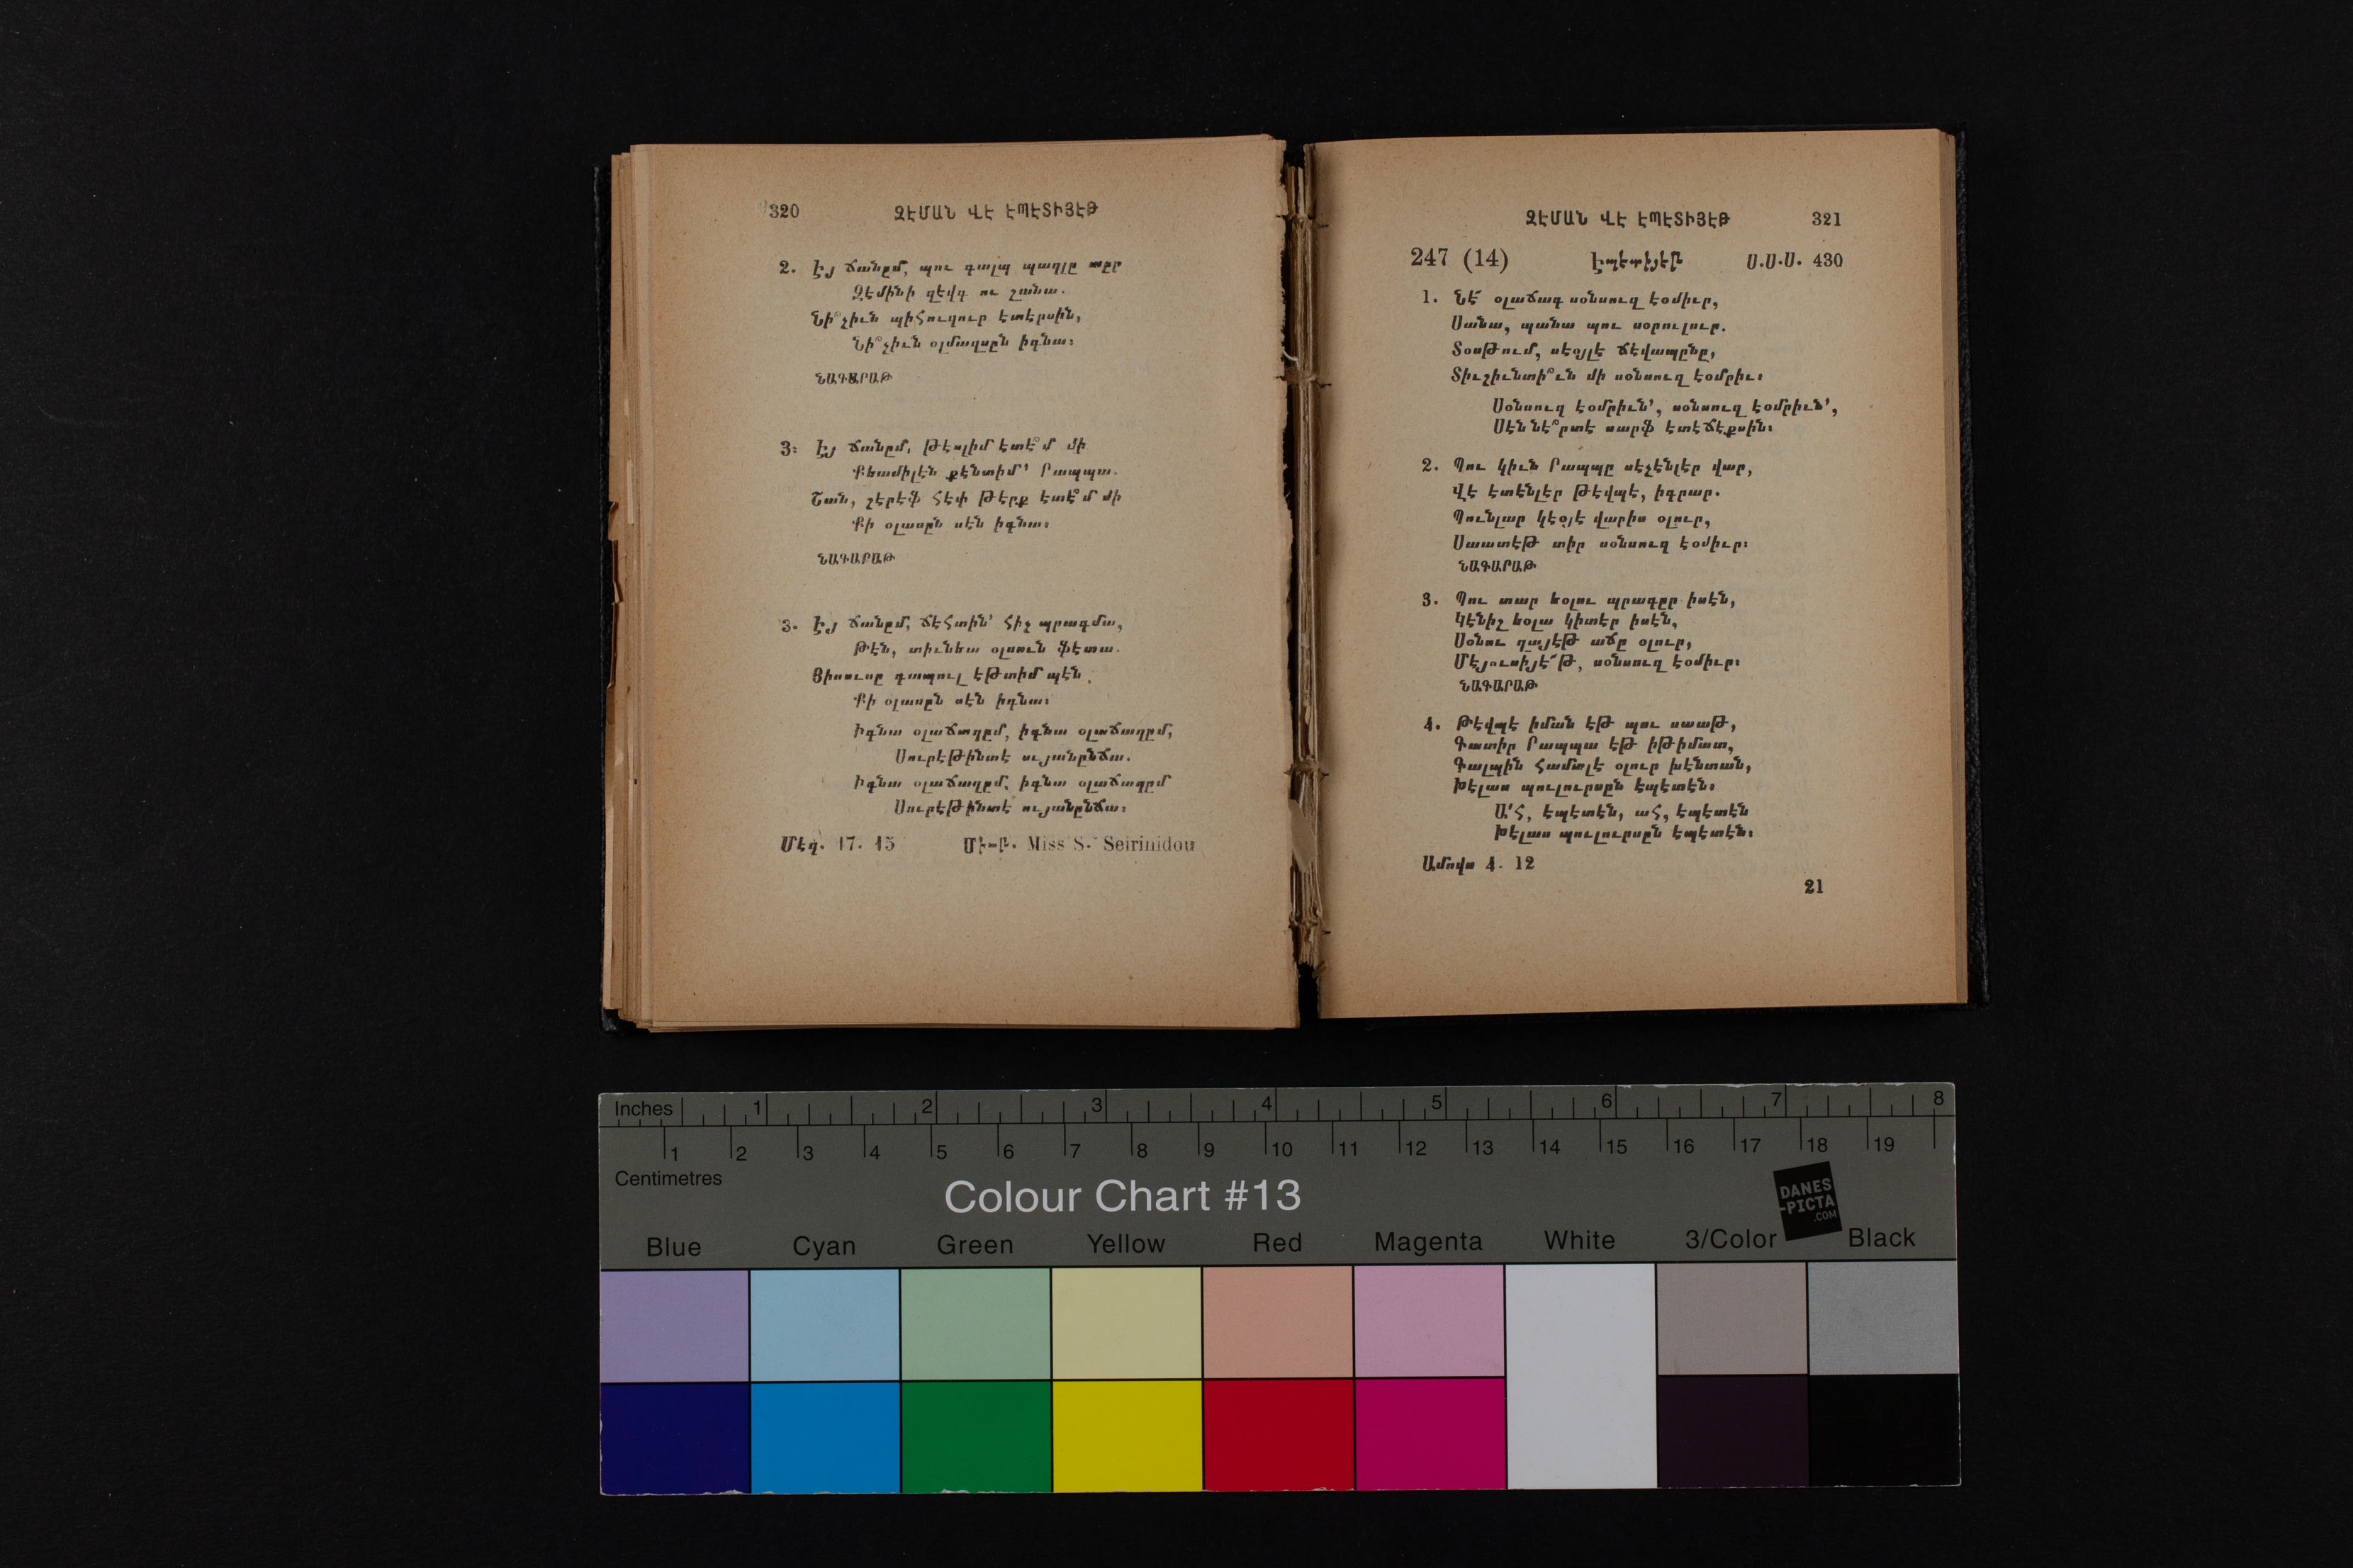 320 ԶԷՄԱՆ ՎԷ ԷՊԷՏԻՅԷԹ
2. Էյ ճանըմ, պու գալպ պաղլը
Զէմինի զէվգ ու շանա.
Նի՞չիւն պիհուզուր էտէրսին,
Նի՞չիւն օլմազսըն իգնա։
ՆԱԳԱՐԱԹ
3։ Էյ ճանըմ, թէսլիմ էտէ՞մ մի
Քեամիլէն քէնտիմ՚ Րապպա.
Շան, շէրէֆ հէփ թէրք էտէ՞մ մի
Քի օլասըն սէն իգնա։
ՆԱԳԱՐԱԹ
3. Էյ ճանըմ, ճէհտին՚ հիչ պրագմա,
Թէն, տիւնեա օլսուն ֆէտա.
Յիսուսը գապուլ էթտիմ պէն
Քի օլասըն սէն իգնա։
Իգնա օլաճաղըմ, իգնա օլաճաղըմ,
Սուրէթինտէ ույանընճա.
Իգնա օլաճաղըմ, իգնա օլաճաղըմ
Սուրէթինտէ ույանընճա։
Մէզ. 17. 15 Միւթ. Miss S. Seirinidou
ԶԷՄԱՆ ՎԷ ԷՊԷՏԻՅԷԹ 321
247 (14) Էպէտիյէթ Ս.Ս.Ս. 430
1. Նէ՜ օլաճագ սօնսուզ էօմիւր,
Սանա, պանա պու սօրուլուր.
Տօսթում, սէօյլէ ճէվապընը,
Տիւշիւնտի՞ւն մի սօնսուզ էօմրիւ։
Սօնսուզ էօմրիւն՚, սօնսուզ էօմրիւն՚,
Սէն նէ՞րտէ սարֆ էտէճէքսին։
2. Պու կիւն Րապպը սէչէնլէր վար,
Վէ էտէնլէր թէվպէ, իգրար.
Պունլար կէօյէ վարիս օլուր,
Սաատէթ տիր սօնսուզ էօմիւր։
ՆԱԳԱՐԱԹ
3. Պու տար եօլու պրագըր իսէն,
Կէնիշ եօլա կիտէր իսէն,
Սօնու ղայէթ աճը օլուր,
Մէյուսիյէ՜թ, սօնսուզ էօմիւր։
ՆԱԳԱՐԱԹ
4. Թէվպէ իման էթ պու սաաթ,
Գատիր Րապպա էթ իթիմատ,
Գալպին համտլէ օլուր խէնտան,
Խէլաս պուլուրսըն էպէտէն։
Ա՛հ, էպէտէն, ահ, էպէտէն
Խէլաս պուլուրսըն էպէտէն։
Ամովս 4. 12
21
Inches 1 2 3 4 5 6 7 8
1 2 3 4 5 6 7 8 9 10 11 12 13 14 15 16 17 18 19
Centimetres
Colour Chart #13
DANES
-PICTA
.COM
Blue Cyan Green Yellow Red Magenta White 3/Color Black